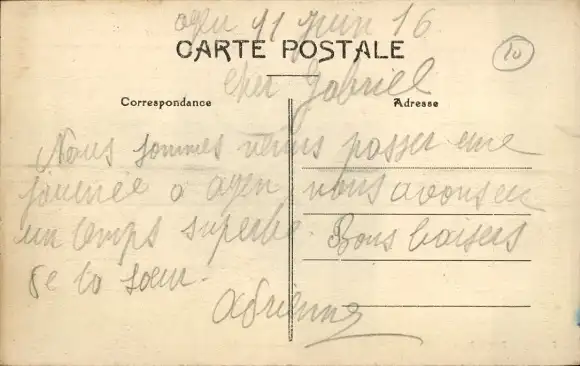 agen 11 juin 16
CARTE POSTALE
10
cher Gabriel
Correspondance
Adresse
Nous sommes venus passer une
journée a agen, nous avons eu
un temps superbe. Bons baisers
de ta sœur.
adrienne